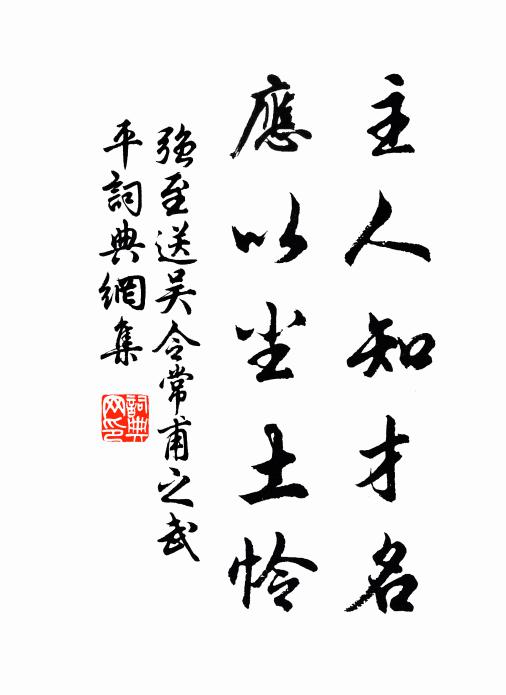 主人知才名
應以尘土怜
強至送吴令常甫之武
平詞典網集
詞典网印